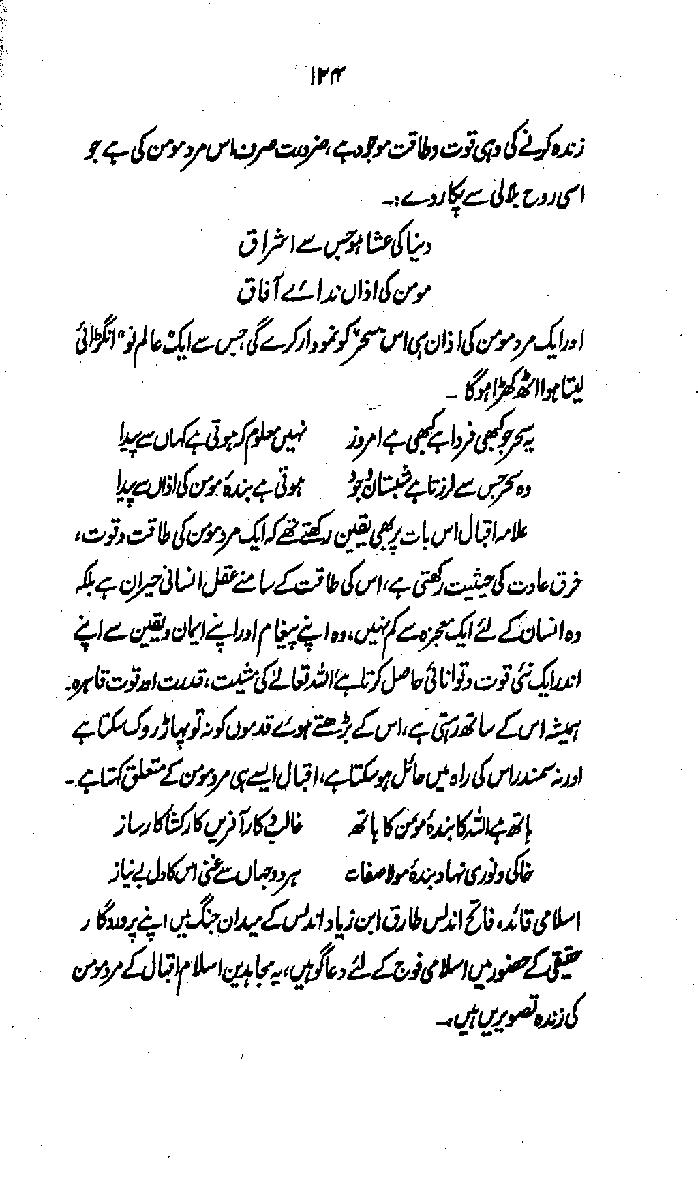 ۱۲۴
زندہ کرنے کی وہی قوت و طاقت موجود ہے، ضرورت صرف اس مرد مومن کی ہے جو
اسی روح بلالی سے پکار دے:۔
دنیا کی عشا ہو جس سے اشراق
مومن کی اذاں ندائے آفاق
اور ایک مرد مومن کی اذان ہی اس "سحر" کو نمودار کرے گی جس سے ایک "عالم نو" انگڑائی
لیتا ہوا اٹھ کھڑا ہوگا۔
یہ سحر جو کبھی فردا ہے کبھی ہے امروز نہیں معلوم کہ ہوتی ہے کہاں سے پیدا
وہ سحر جس سے لرزتا ہے شبستان وجود ہوتی ہے بندۂ مومن کی اذاں سے پیدا
علامہ اقبال اس بات پر بھی یقین رکھتے تھے کہ ایک مرد مومن کی طاقت و قوت،
خرق عادت کی حیثیت رکھتی ہے، اس کی طاقت کے سامنے عقل انسانی حیران ہے بلکہ
وہ انسان کے لئے ایک معجزہ سے کم نہیں، وہ اپنے پیغام اور اپنے ایمان و یقین سے اپنے
اندر ایک نئی قوت و توانائی حاصل کرتا ہے اللہ تعالےٰ کی مشیت، قدرت اور قوت قاہرہ
ہمیشہ اس کے ساتھ رہتی ہے، اس کے بڑھتے ہوئے قدموں کو نہ تو پہاڑ روک سکتا ہے
اور نہ سمندر اس کی راہ میں حائل ہو سکتا ہے، اقبال ایسے ہی مرد مومن کے متعلق کہتا ہے۔
ہاتھ ہے اللہ کا بندۂ مومن کا ہاتھ غالب و کار آفریں کار کشا کار ساز
خاکی و نوری نہاد بندۂ مولا صفات ہر دو جہاں سے غنی اس کا دل بے نیاز
اسلامی قائد، فاتح اندلس طارق ابن زیاد اندلس کے میدان جنگ میں اپنے پروردگار
حقیقی کے حضور میں اسلامی فوج کے لئے دعا گو ہیں، یہ مجاہدین اسلام اقبال کے مرد مومن
کی زندہ تصویریں ہیں۔